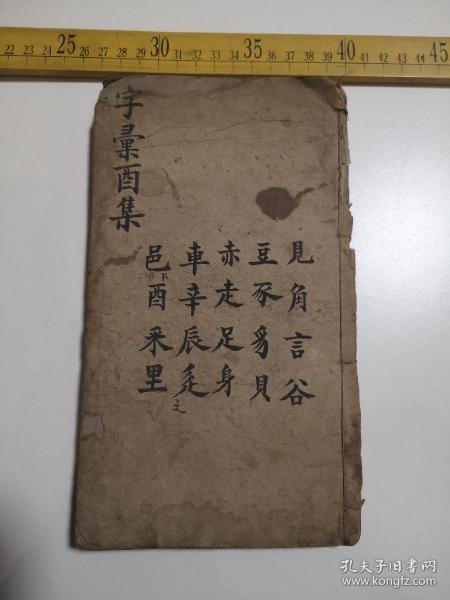 22 23 24 25 26 27 28 29 30 31 32 33 34 35 36 37 38 39 40 41 42 43 44 45
字彙酉集
見角言谷
豆豕豸貝
赤走足身
車辛辰辵
辶
邑酉釆里
下
孔夫子旧书网
www.kongfz.com